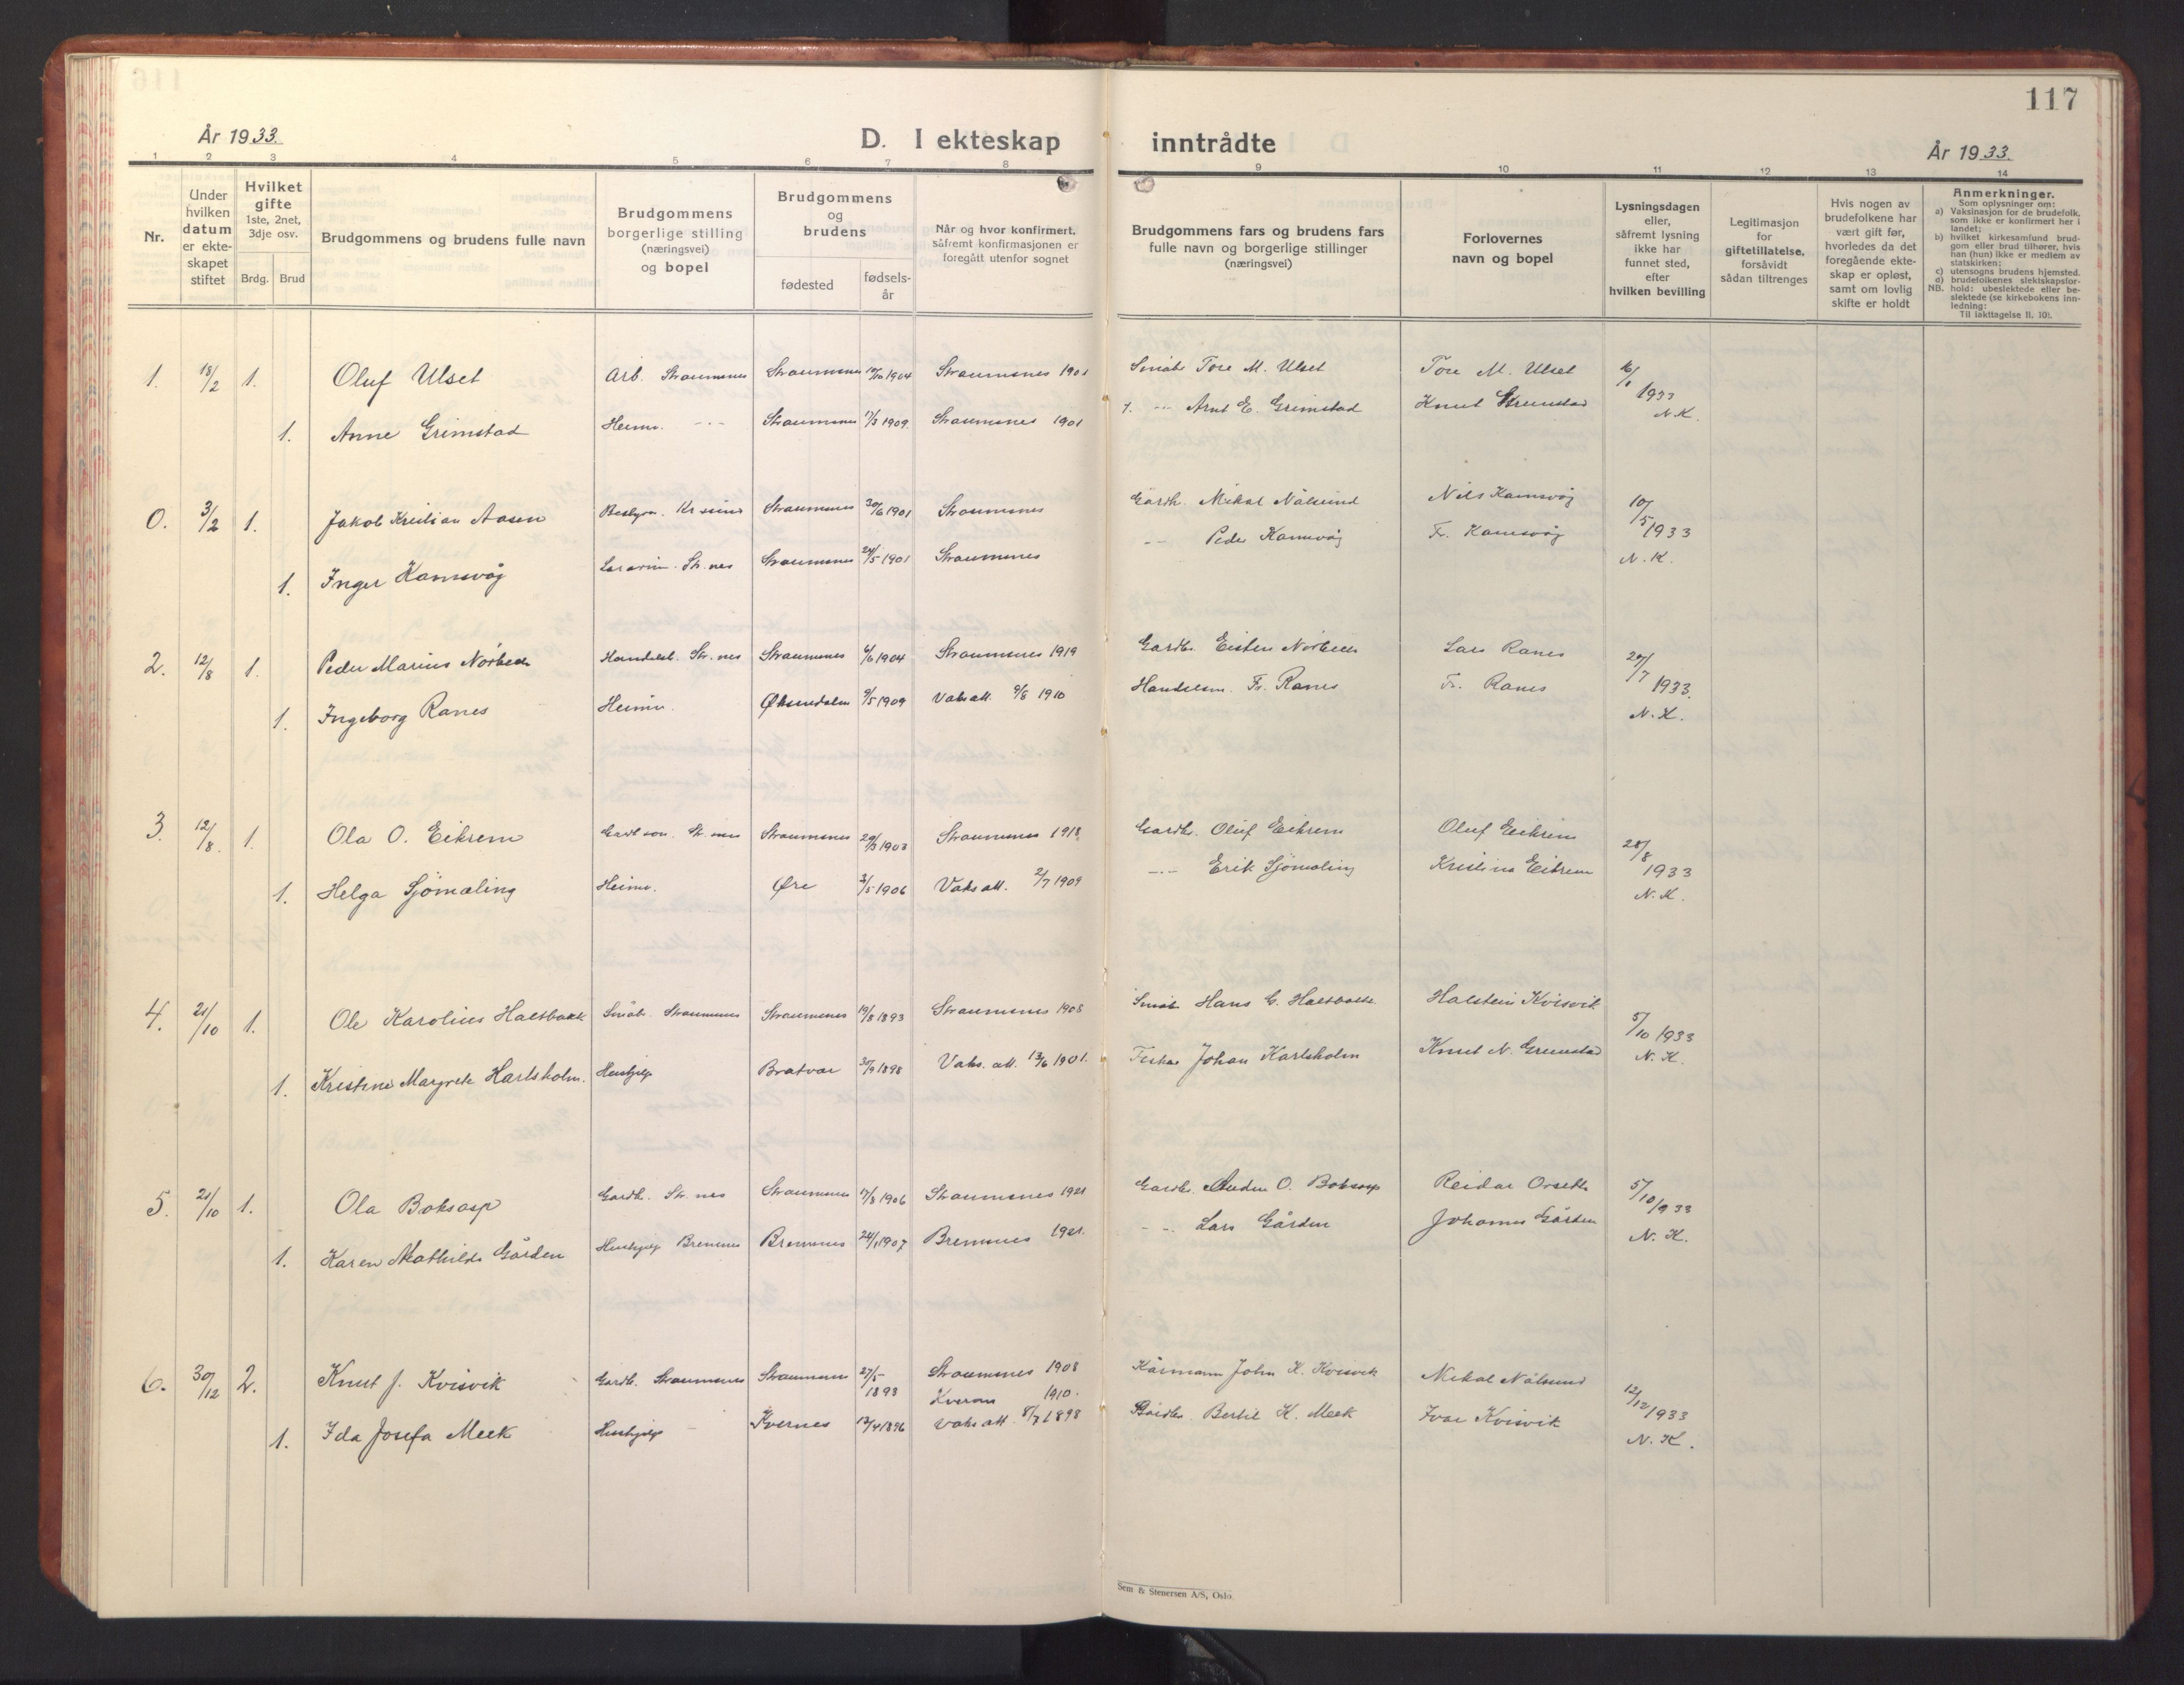 117
År 1933.
D. I ekteskap inntrådte
År 1933.
1 2 3 4 5 6 7 8 9 10 11 12 13 14
Nr.
Under hvilken datum er ekte-skapet stiftet
Hvilket gifte 1ste, 2net, 3dje osv.
Brdg. Brud
Brudgommens og brudens fulle navn
Brudgommens borgerlige stilling (næringsvei) og bopel
Brudgommens og brudens
fødested
fødsels-år
Når og hvor konfirmert, såfremt konfirmasjonen er foregått utenfor sognet
Brudgommens fars og brudens fars fulle navn og borgerlige stillinger (næringsvei)
Forlovernes navn og bopel
Lysningsdagen eller, såfremt lysning ikke har funnet sted, efter hvilken bevilling
Legitimasjon for giftetillatelse, forsåvidt sådan tiltrenges
Hvis nogen av brudefolkene har vært gift før, hvorledes da det foregående ekte-skap er opløst, samt om lovlig skifte er holdt
Anmerkninger.
Som oplysninger om:
a) Vaksinasjon for de brudefolk, som ikke er konfirmert her i landet;
b) hvilket kirkesamfund brud-gom eller brud tilhører, hvis han (hun) ikke er medlem av statskirken;
c) utensogns brudens hjemsted.
d) brudefolkenes slektskapsfor-hold: ubeslektede eller be-slektede (se kirkebokens inn-ledning:
NB.
Til iakttagelse II. 10).
1. 18/2 1. Oluf Ulset Arb. Straumsnes Straumsnes 1904 Straumsnes Småb. Tore M. Ulset Tore M. Ulset 1933
1. Anne Grimstad Heimv. -"- Straumsnes 1/3 1909. Straumsnes 1901 -"- Arnt E. Grimstad Knut Grimstad N.K.
0. 3/2 1. Jakob Kristian Aasen Kr.sund Straumsnes 30/6 1901 Straumsnes Gårdb. Mikal Nålsund Nils Kamsvåg 10/5 1933
1. Inger Kamsvåg Str.nes Straumsnes 24/5 1901 Straumsnes -"- Peder Kamsvåg Fr. Kamsvåg N.K.
2. 12/8 1. Peder Marius Norbeck Str.nes Straumsnes 6/6 1904 Straumsnes 1919 Gardb. Eisten Norbeck Lars Ranes 1933.
1. Ingeborg Ranes Heimv. Øksendalen 9/5 1909 Vaks att. 9/8 1910 Handelsm. Fr. Ranes Fr. Ranes N.K.
3. 12/8. 1. Ola O. Eikrem Gardb son. Str.nes Straumsnes 29/3 1903 Straumsnes 1918. Gardb. Oluf Eikrem Oluf Eikrem 28/8 1933
1. Helga Sjömæling Heimv. Øre 3/5 1906 Vaks att. 2/7 1909 -"- Erik Sjömæling Kristina Eikrem N.K.
4. 21/10 1. Ole Karolius Halsbakk Småb. Straumsnes Straumsnes 19/8 1893 Straumsnes 1908 Småb Hans G. Halsbakk Halstein Kvisvik 5/10 1933
1. Kristine Margrete Karlsholm. Hushjelp Bratvær 30/9 1898 Vaks. att. 13/6 1901. Fiskar Johan Karlsholm Knut N. Grimstad N.K.
5. 21/10 1. Ola Boksasp Gardb. Str.nes Straumsnes 17/8 1906 Straumsnes 1921 Gardb. Anders O. Boksasp Reidar Orseth 5/10 1933
1. Karen Mathilde Gården Hushjelp Bremsnes Bremsnes 24/1 1907 Bremsnes 1921. -"- Lars Gården Johannes Gården N.K.
6. 30/12 2. Knut J. Kvisvik Gardb. Straumsnes Straumsnes 27/5 1893 Straumsnes 1908 Kårmann John K. Kvisvik Mikal Nålsund 12/12 1933
1. Ida Josefa Meek Hushjelp - Kvernes 13/4 1896 Kvernes 1910. Vaks att. 8/7 1898 Gårdb. Bertil K. Meek Ivar Kvisvik N.K.
Sem & Stenersen A/S, Oslo.